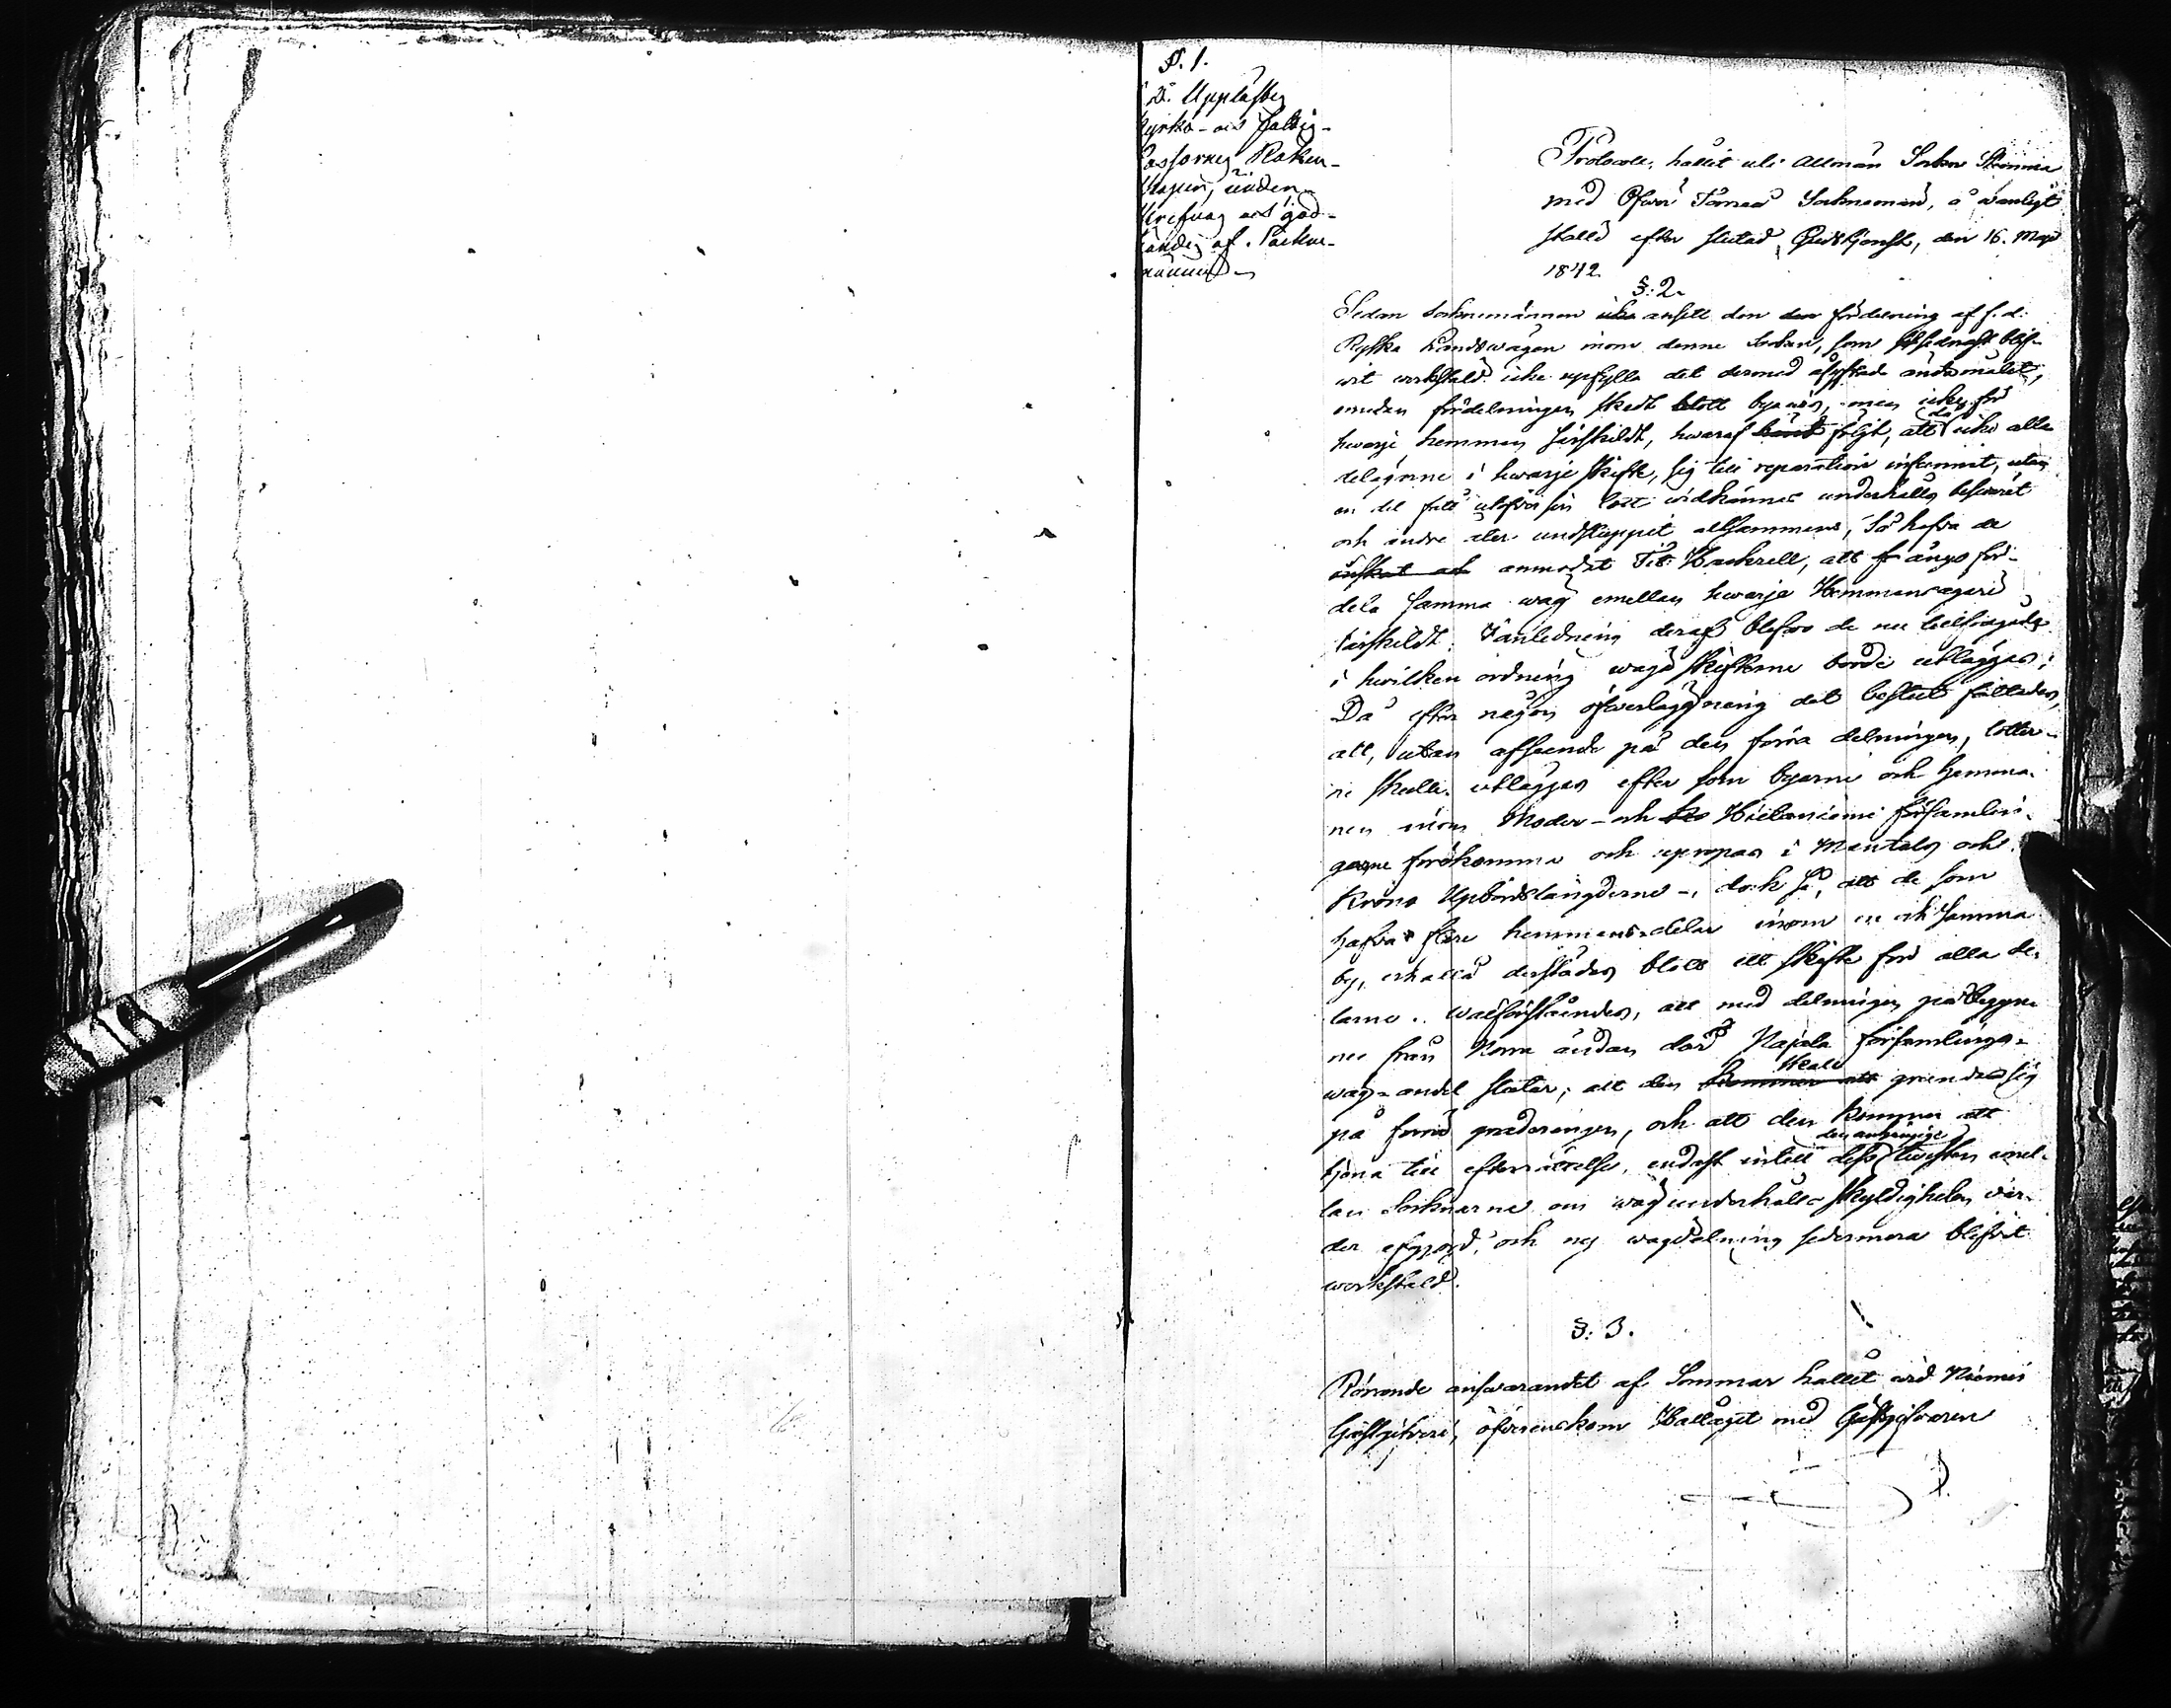 §. 1.
Uppläsdes
Kyrko- och Fattig-
Cassornes Räken-
skaper, under-
skrefvos och god-
kändes af Sockne-
männen
Protocoll, hållit uti allmän Sockne Stämma
med Öfver Torneå Sockneman, å vanligt
ställe efter slutad Gudstjenst, den 16. Maji
1842.
§: 2.
Sedan Socknemännen icke ansett den den fördelning af f. d.
Ryska Landsvägen inom denne Socken, som sednast blif-
vit verkställd icke upfylla det dermed åsyftade ändamålet,
emedan fördelningen skedt blott byavis, men icke för
hvarje hemman särskildt, hvaraf händt följt, att da icke alla
delägarne i hvarje skifte, sig till reparation infunnit, utan
en del fått utöfver sin lott vidkännas underhålls besväret
och andre åter undsluppit altsammans, Så hafva de
önskat och anmodat Tit: Hackzell, att å nyo för-
dela samma väg emellan hvarje Hemmansägare
särskildt. I anledning deraf blefvo de nu tillfrågade
i hvilken ordning vägskiftena borde utläggas;
Då efter någon öfverläggning det beslut fattades,
att, utan afseende på den förra delningen, lotter-
ne skulle utläggas efter som byarne och hemma-
nen inom Moder- och Hietaniemi församlin-
garne förekomma och upropas i Mantals och
Krono Upbördslängderne -, dock så, att de som
hafva flere hemmansdelar inom en och samma
by, erhålla derstädes blott ett skifte för alla de-
larne. Wälförståendes, att med delningen påbegyn-
nes från Norra ändan der Pajala församlings-
väg-andel slutar; att den kommer att skall grunda sig
på förra graderingen, och att den kommer att
tjena till efterrättelse, endast intill dess den anhängige tvisten emel-
lan Socknarne om vägunderhålls skyldigheten vär-
der afgjord, och ny vägdelning sedermera blifvit
verkställd.
§: 3.
Rörande ansvarandet af Sommar hållet vid Niemis
Gästgifveri, öfverenskom Hållaget med Gästgifvaren